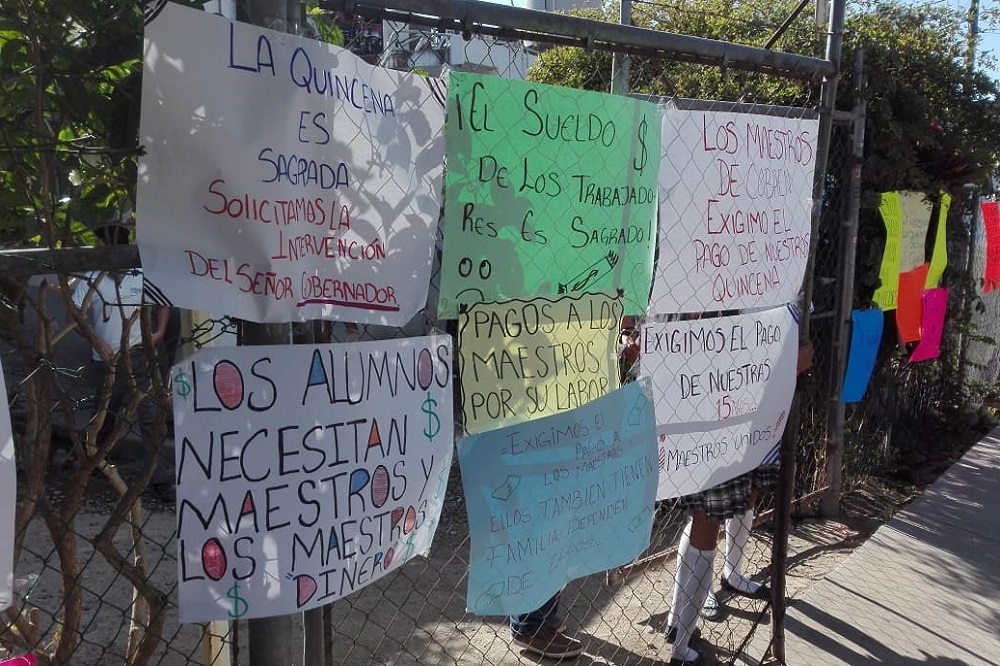 LA QUINCENA
ES
SAGRADA
SOLICITAMOS LA
INTERVENCIÓN
DEL SEÑOR GOBERNADOR
¡EL SUELDO $
DE LOS TRABAJADO
RES ES SAGRADO!
LOS MAESTROS
DE COBAEN
EXIGIMO EL
PAGO DE NUESTROS
QUINCENA
PAGOS A LOS
MAESTROS
POR SU LABOR
EXIGIMOS EL PAGO
DE NUESTRAS
15NAS...
MAESTROS UNIDOS.
$LOS ALUMNOS
NECESITAN $
MAESTROS Y
LOS MAESTROS
$ DINERO $
EXIGIMOS EL
PAGO A
LOS MAESTROS
ELLOS TAMBIEN TIENEN
FAMILIA: DEPENDEN
DE